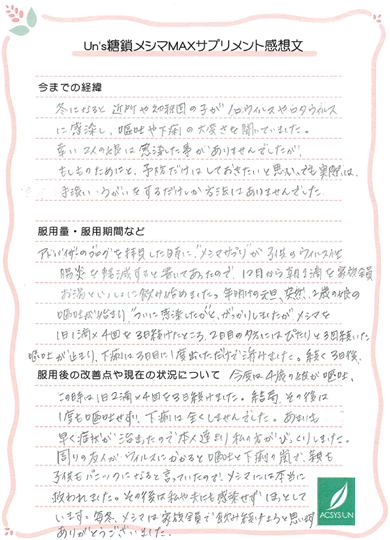 Un's糖鎖メシマMAXサプリメント感想文
今までの経緯
冬になると近所や幼稚園の子がノロウィルスやロタウィルス
に感染し、嘔吐や下痢の大変さを聞いていました。
幸い2人の娘は感染した事がありませんでしたが、
もしものためにと、予防だけはしておきたいと思い、でも実際は、
手洗い・うがいをするだけしか方法はありませんでした。
服用量・服用期間など
アドバイザーのブログを拝見した時に、"メシマサプリ"が子供のウィルス性
腸炎を軽減すると書いてあったので、12月から朝1滴を家族全員
お湯といっしょに飲み始めました。年明けの元旦、突然、2歳の娘の
嘔吐が始まり、"ついに感染したか"と、がっかりしましたがメシマを
1日1滴×4回を3日続けたところ、2日目の夕方にはぴたりと3回続いた
嘔吐が止まり、下痢は3日目に1度出ただけで済みました。続く3日後、
服用後の改善点や現在の状況について 今度は4歳の娘が嘔吐、
この時は1日2滴×4回を3日続けました。結局、その後は
1度も嘔吐せず、下痢は全くしませんでした。あまりにも
早く症状が治まったので本人達より私の方がびっくりしました。
周りの友人がウィルスにかかると嘔吐と下痢の闘で、親も
子供もパニックになると言っていたので、メシマには本当に
救われました。その後は私や夫にも感染せずほっとして
います。毎冬、メシマは家族全員で飲み続けようと思います
ありがとうございました。
ACSYSUN